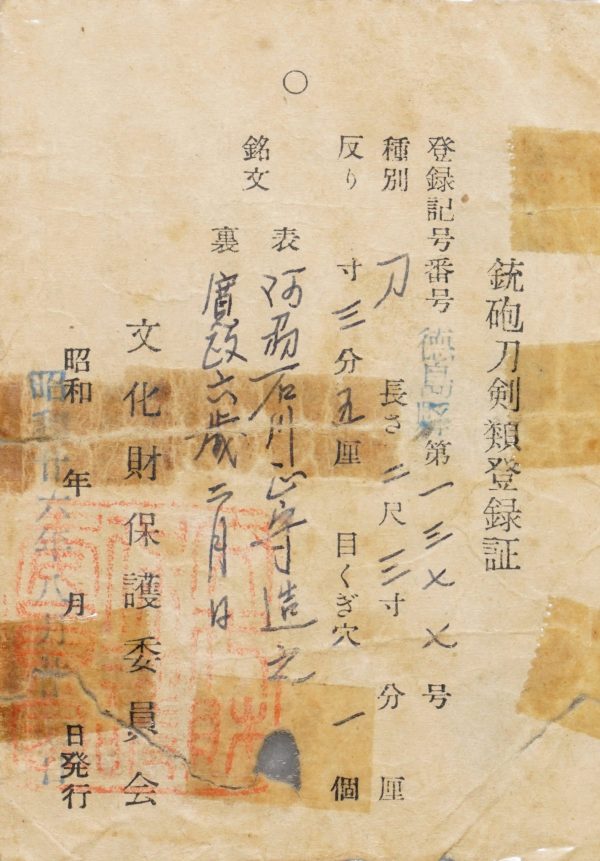 銃砲刀剣類登録証
登録記号番号 徳島県第一三××号
種別 刀 長さ二尺三寸 分 厘
反り 寸三分五厘 目くぎ穴 一個
銘文 表 阿州石川正守造之
裏 寛政六歳二月日
文化財保護委員会
昭和 年 月 日発行
昭和廿六年八月廿 日